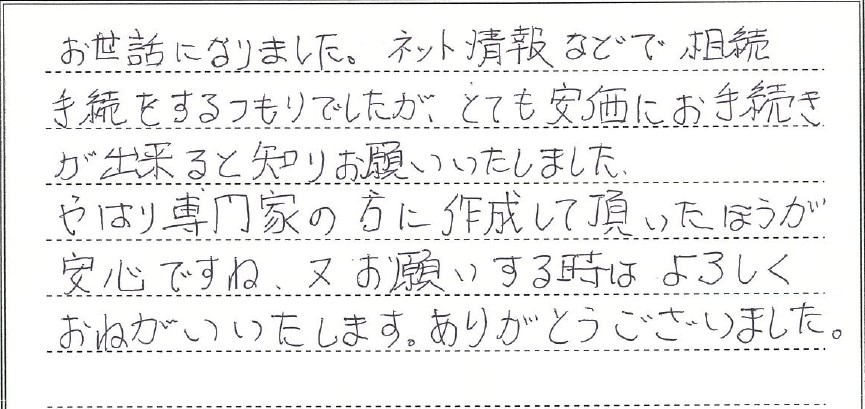 お世話になりました。ネット情報などで相続
手続をするつもりでしたが、とても安価にお手続き
が出来ると知りお願いいたしました、
やはり専門家の方に作成して頂いたほうが
安心ですね、又お願いする時はよろしく
おねがいいたします。ありがとうございました。